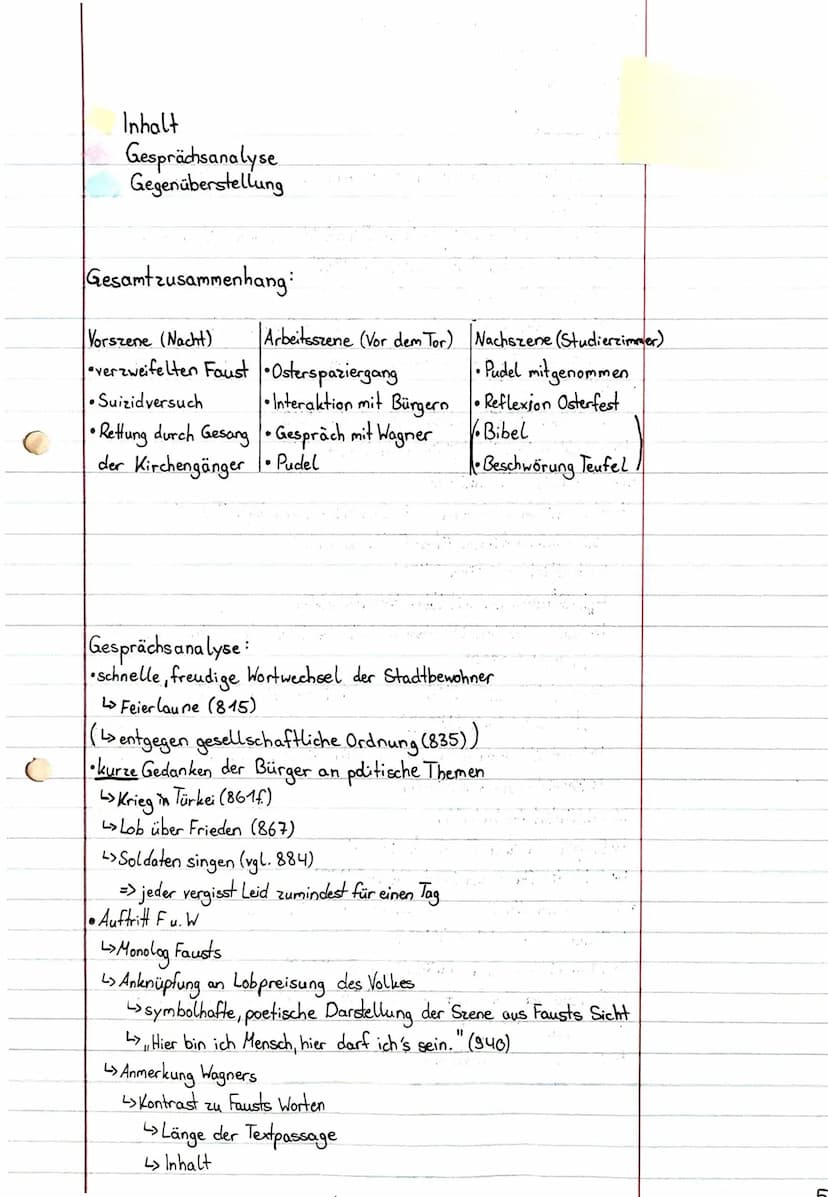 Inhalt
Gesprächsanalyse
Gegenüberstellung
Gesamtzusammenhang:
Vorszene (Nacht) Arbeitsszene (Vor dem Tor) Nachszene (Studierzimmer)
•verzweifelten Faust •Osterspaziergang •Pudel mitgenommen
•Suizidversuch •Interaktion mit Bürgern •Reflexion Osterfest
•Rettung durch Gesang •Gespräch mit Wagner (•Bibel
der Kirchengänger •Pudel •Beschwörung Teufel)
Gesprächsanalyse:
•schnelle, freudige Wortwechsel der Stadtbewohner
↳Feierlaune (815)
(↳entgegen gesellschaftliche Ordnung (835))
•kurze Gedanken der Bürger an politische Themen
↳Krieg in Türkei (861f.)
↳Lob über Frieden (867)
↳Soldaten singen (vgl. 884)
=> jeder vergisst Leid zumindest für einen Tag
•Auftritt F u. W
↳Monolog Fausts
↳Anknüpfung an Lobpreisung des Volkes
↳symbolhafte, poetische Darstellung der Szene aus Fausts Sicht
↳„Hier bin ich Mensch, hier darf ich's sein." (940)
↳Anmerkung Wagners
↳Kontrast zu Fausts Worten
↳Länge der Textpassage
↳Inhalt